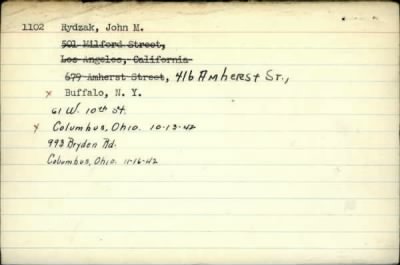 1102 Rydzak, John M.
501 Milford Street,
Los Angeles, California
679 Amherst Street, 416 Amherst St.,
x Buffalo, N. Y.
61 W. 10th St.
x Columbus, Ohio. 10-13-42
993 Bryden Rd.
Columbus, Ohio. 11-16-42